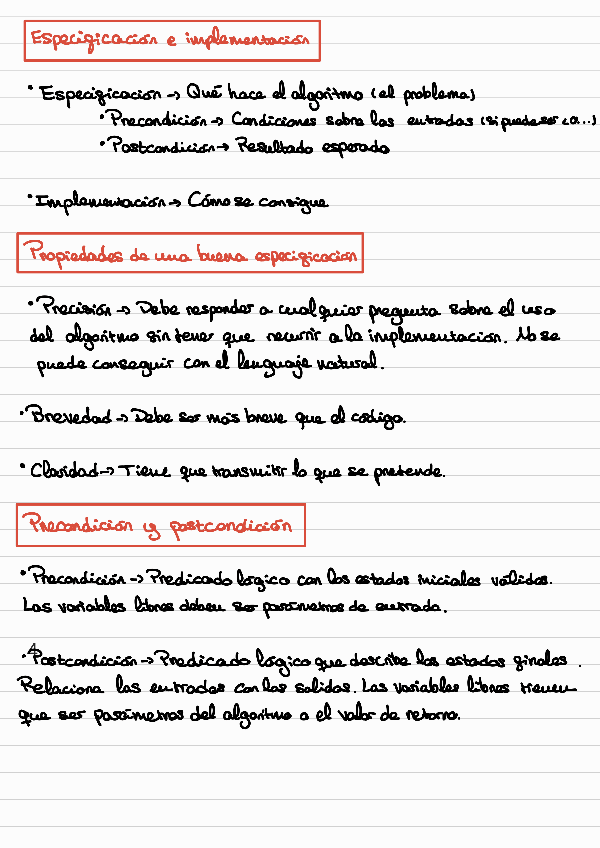 Especificación e implementación
• Especificación → Qué hace el algoritmo (el problema)
• Precondición → Condiciones sobre las entradas (si puede ser <0...)
• Postcondición → Resultado esperado
• Implementación → Cómo se consigue
Propiedades de una buena especificación
• Precisión → Debe responder a cualquier pregunta sobre el uso
del algoritmo sin tener que recurrir a la implementación. No se
puede conseguir con el lenguaje natural.
• Brevedad → Debe ser más breve que el código.
• Claridad → Tiene que transmitir lo que se pretende.
Precondición y postcondición
• Precondición → Predicado lógico con los estados iniciales válidos.
Las variables libres deben ser parámetros de entrada.
• Postcondición → Predicado lógico que describe los estados finales.
Relaciona las entradas con las salidas. Las variables libres tienen
que ser parámetros del algoritmo o el valor de retorno.